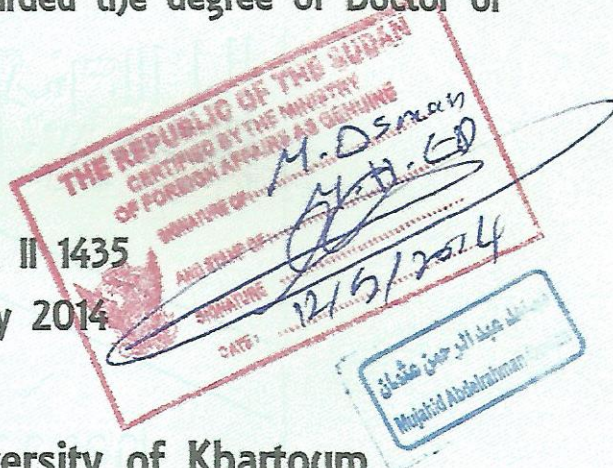 arded the degree of Doctor of
THE REPUBLIC OF THE SUDAN
CERTIFIED BY THE MINISTRY
OF FOREIGN AFFAIRS AS GENUINE
SIGNATURE OF M. Osman
AND STAMP OF M. H. ED
SIGNATURE
DATE: 12/5/2014
II 1435
y 2014
مجاهد عبد الرحمن عثمان
Mujahid Abdelrahman
versity of Khartoum